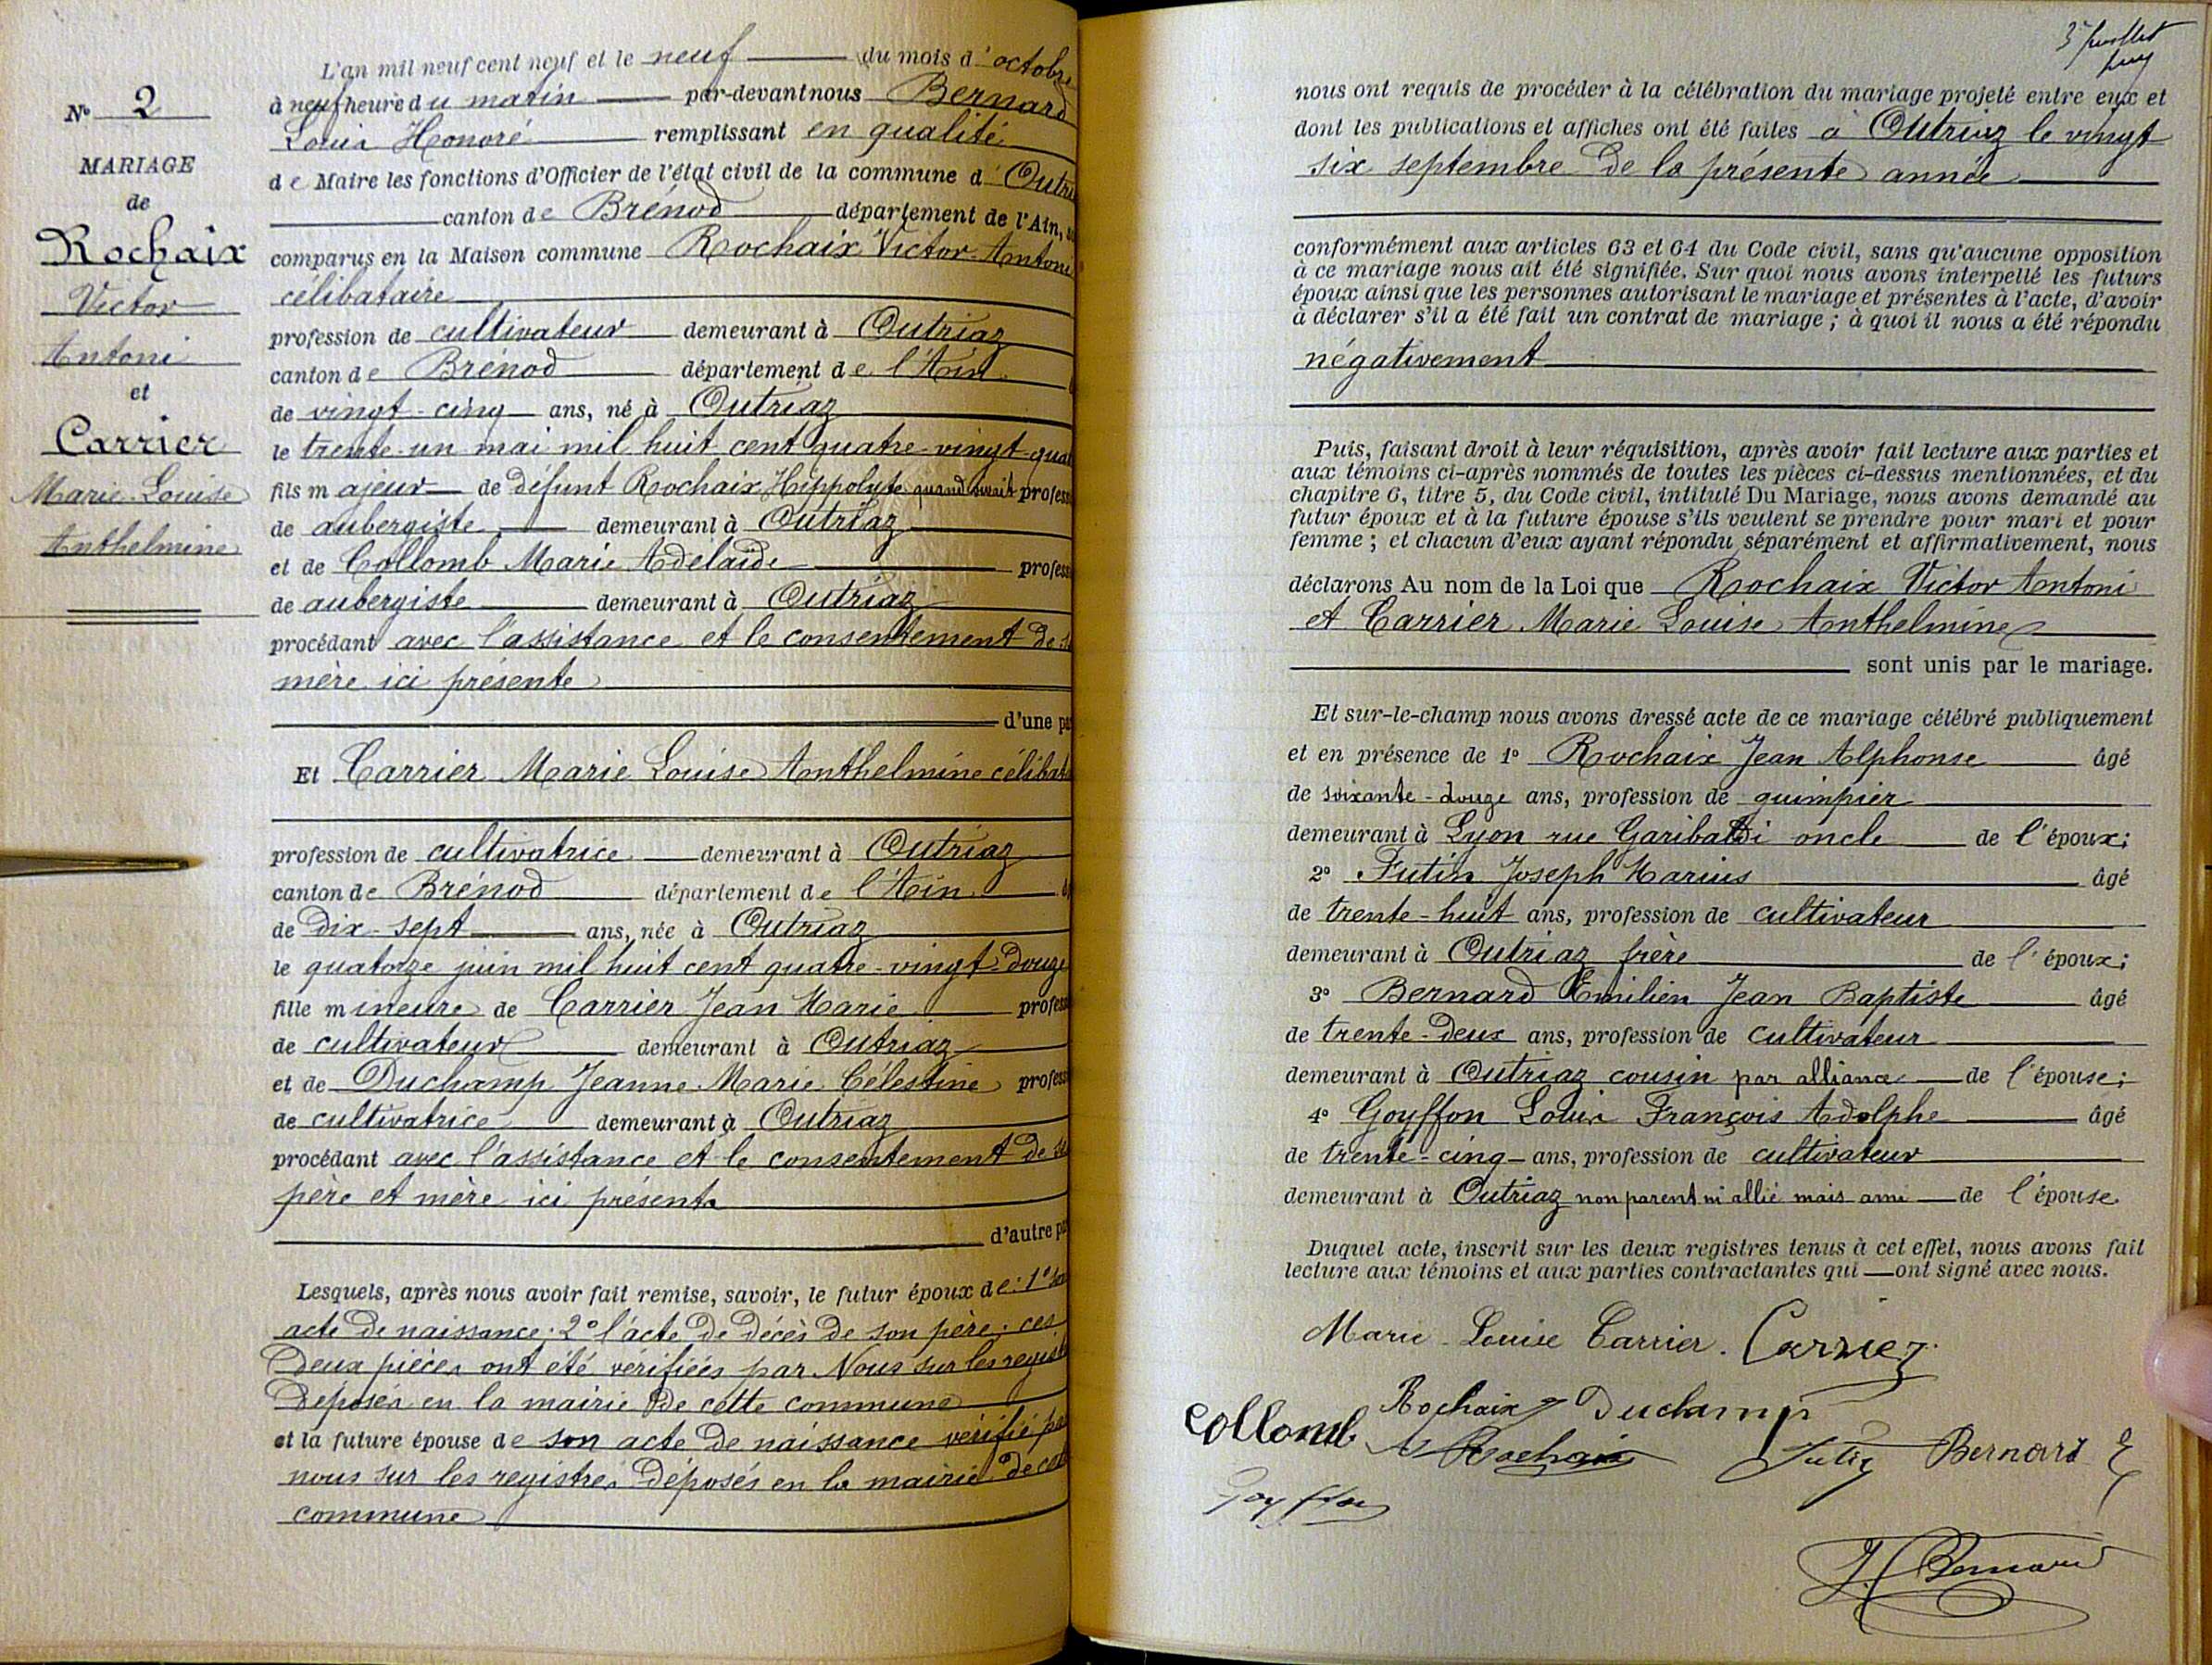 N° 2
MARIAGE
de
Rochaix
Victor
Antoni
et
Carrier
Marie-Louise
Anthelmine
L'an mil neuf cent neuf et le neuf du mois d'octobre
à neuf heure du matin par-devant nous Bernard
Louis Honoré remplissant en qualité
de Maire les fonctions d'Officier de l'état civil de la commune d'Outri
canton de Brénod département de l'Ain,
comparus en la Maison commune Rochaix Victor-Antoni
célibataire
profession de cultivateur demeurant à Outriaz
canton de Brénod département de l'Ain
de vingt-cinq ans, né à Outriaz
le trente-un mai mil huit cent quatre-vingt-quat
fils majeur de défunt Rochaix Hippolyte quand vivait profess
de aubergiste demeurant à Outriaz
et de Collomb Marie Adelaïde profess
de aubergiste demeurant à Outriaz
procédant avec l'assistance et le consentement de s
mère ici présente
d'une pa
Et Carrier Marie Louise Anthelmine célibat
profession de cultivatrice demeurant à Outriaz
canton de Brénod département de l'Ain
de dix-sept ans, née à Outriaz
le quatorze juin mil huit cent quatre-vingt-douze
fille mineure de Carrier Jean Marie profess
de cultivateur demeurant à Outriaz
et de Duchamp Jeanne-Marie Célestine profess
de cultivatrice demeurant à Outriaz
procédant avec l'assistance et le consentement de se
père et mère ici présents
d'autre pa
Lesquels, après nous avoir fait remise, savoir, le futur époux de: 1° son
acte de naissance; 2° l'acte de décès de son père; ces
deux pièces ont été vérifiées par Nous sur les regist
déposés en la mairie de cette commune
et la future épouse de son acte de naissance vérifié pa
nous sur les registres déposés en la mairie de cett
commune
3e feuillet
nous ont requis de procéder à la célébration du mariage projeté entre eux et
dont les publications et affiches ont été faites à Outriaz le vingt
six septembre de la présente année
conformément aux articles 63 et 64 du Code civil, sans qu'aucune opposition
à ce mariage nous ait été signifiée. Sur quoi nous avons interpellé les futurs
époux ainsi que les personnes autorisant le mariage et présentes à l'acte, d'avoir
à déclarer s'il a été fait un contrat de mariage; à quoi il nous a été répondu
négativement
Puis, faisant droit à leur réquisition, après avoir fait lecture aux parties et
aux témoins ci-après nommés de toutes les pièces ci-dessus mentionnées, et du
chapitre 6, titre 5, du Code civil, intitulé Du Mariage, nous avons demandé au
futur époux et à la future épouse s'ils veulent se prendre pour mari et pour
femme; et chacun d'eux ayant répondu séparément et affirmativement, nous
déclarons Au nom de la Loi que Rochaix Victor Antoni
et Carrier Marie Louise Anthelmine
sont unis par le mariage.
Et sur-le-champ nous avons dressé acte de ce mariage célébré publiquement
et en présence de 1° Rochaix Jean Alphonse âgé
de soixante-douze ans, profession de guimpier
demeurant à Lyon rue Garibaldi oncle de l'époux;
2° Futin Joseph Marius âgé
de trente-huit ans, profession de cultivateur
demeurant à Outriaz frère de l'époux;
3° Bernard Emilien Jean Baptiste âgé
de trente-deux ans, profession de cultivateur
demeurant à Outriaz cousin par alliance de l'épouse;
4° Goyffon Louis François Adolphe âgé
de trente-cinq ans, profession de cultivateur
demeurant à Outriaz non parent ni allié mais ami de l'épouse
Duquel acte, inscrit sur les deux registres tenus à cet effet, nous avons fait
lecture aux témoins et aux parties contractantes qui ont signé avec nous.
Marie-Louise Carrier. Carrier
Rochaix Duchamp
Collomb Rochaix Futin Bernard E
Goyffon
Bernard